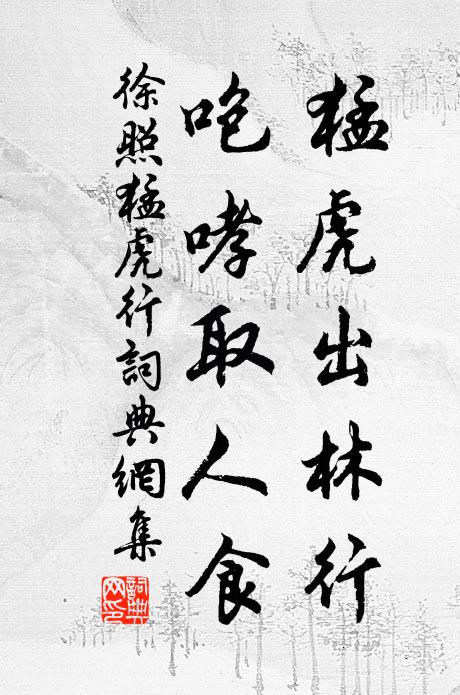 猛虎出林行
咆哮取人食
徐照猛虎行詞典網集
詞典网印